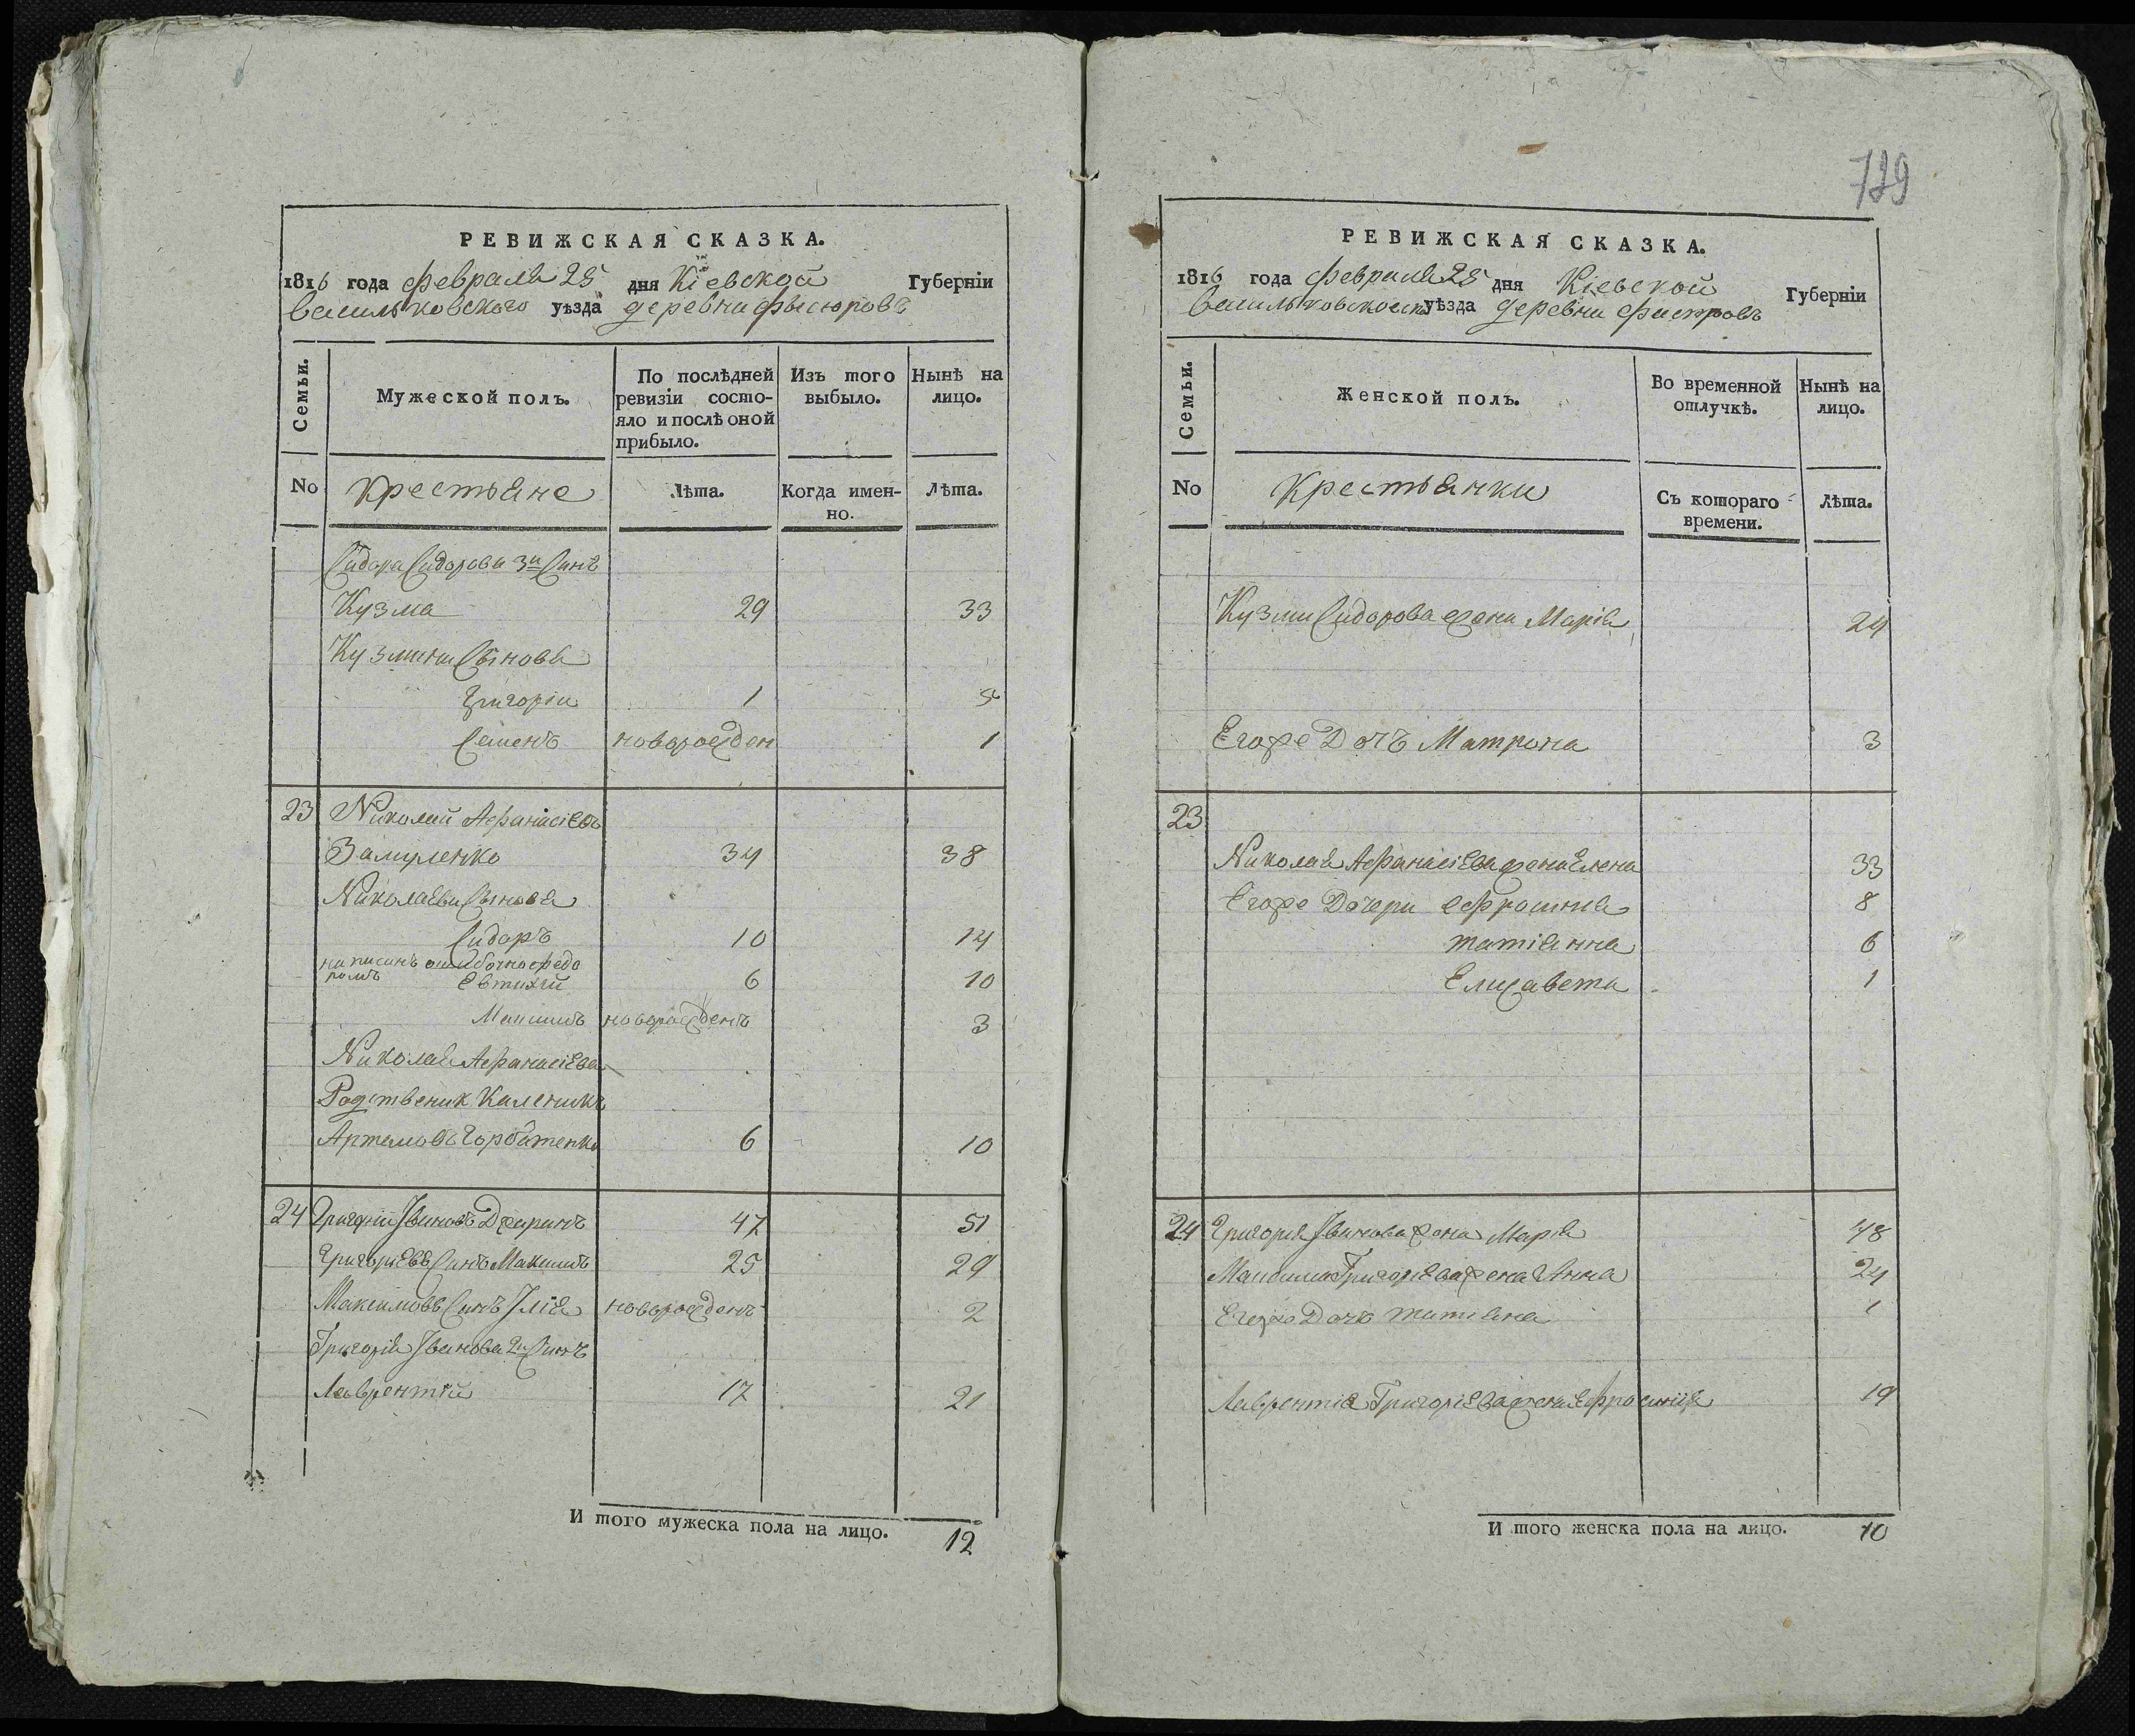 РЕВИЖСКАЯ СКАЗКА.
1816 года февраля 25 дня Кіевской Губерніи
васильковского уѣзда деревни фисюровъ
Семьи.
Мужеской полъ.
По послѣдней ревизіи состо-
яло и послѣ оной
прибыло.
Изъ того
выбыло.
Нынѣ на
лицо.
No крестьяне Лѣта. Когда имен-
но. Лѣта.
Сидора Сидорова 3й Синъ
Кузма 29 33
Кузмини Сынова
Григорій 1 5
Семенъ новорожден 1
23 Николай Афанасіевъ
34 38
Николаеви Сынова
Сидоръ 10 14
написанъ ошибочно федо
ромъ Евтихій 6 10
Максимъ новорожденъ 3
Николая Афанасіева
Родственик Каленикъ
Артемовъ Горбатенко 6 10
24 Григорій Івановъ Джиринъ 47 51
Григоріевъ Синъ Максимъ 25 29
Максимовъ Синъ Ілія новорожденъ 2
Григорія Іванова 2й Синъ
Лаврентій 17 21
И того мужеска пола на лицо. 12
739
РЕВИЖСКАЯ СКАЗКА.
1816 года февраля 25 дня Кіевской Губерніи
васильковского уѣзда деревни
Семьи.
Женской полъ.
Во временной
отлучкѣ.
Нынѣ на
лицо.
No крестьянки Съ котораго
времени. Лѣта.
Кузми Сидорова жена Марія 24
Егоже Дочъ Матрона 3
23
Николая Афанасіева жена Елена 33
Егоже Дочери ефросиния 8
татіянна 6
Елисавета 1
24 Григорія Іванова жена Марія 48
Максима Григоріева жена Анна 24
Егоже Дочъ татіяна 1
Лаврентія Григоріева жена Ефросинія 19
И того женска пола на лицо. 10